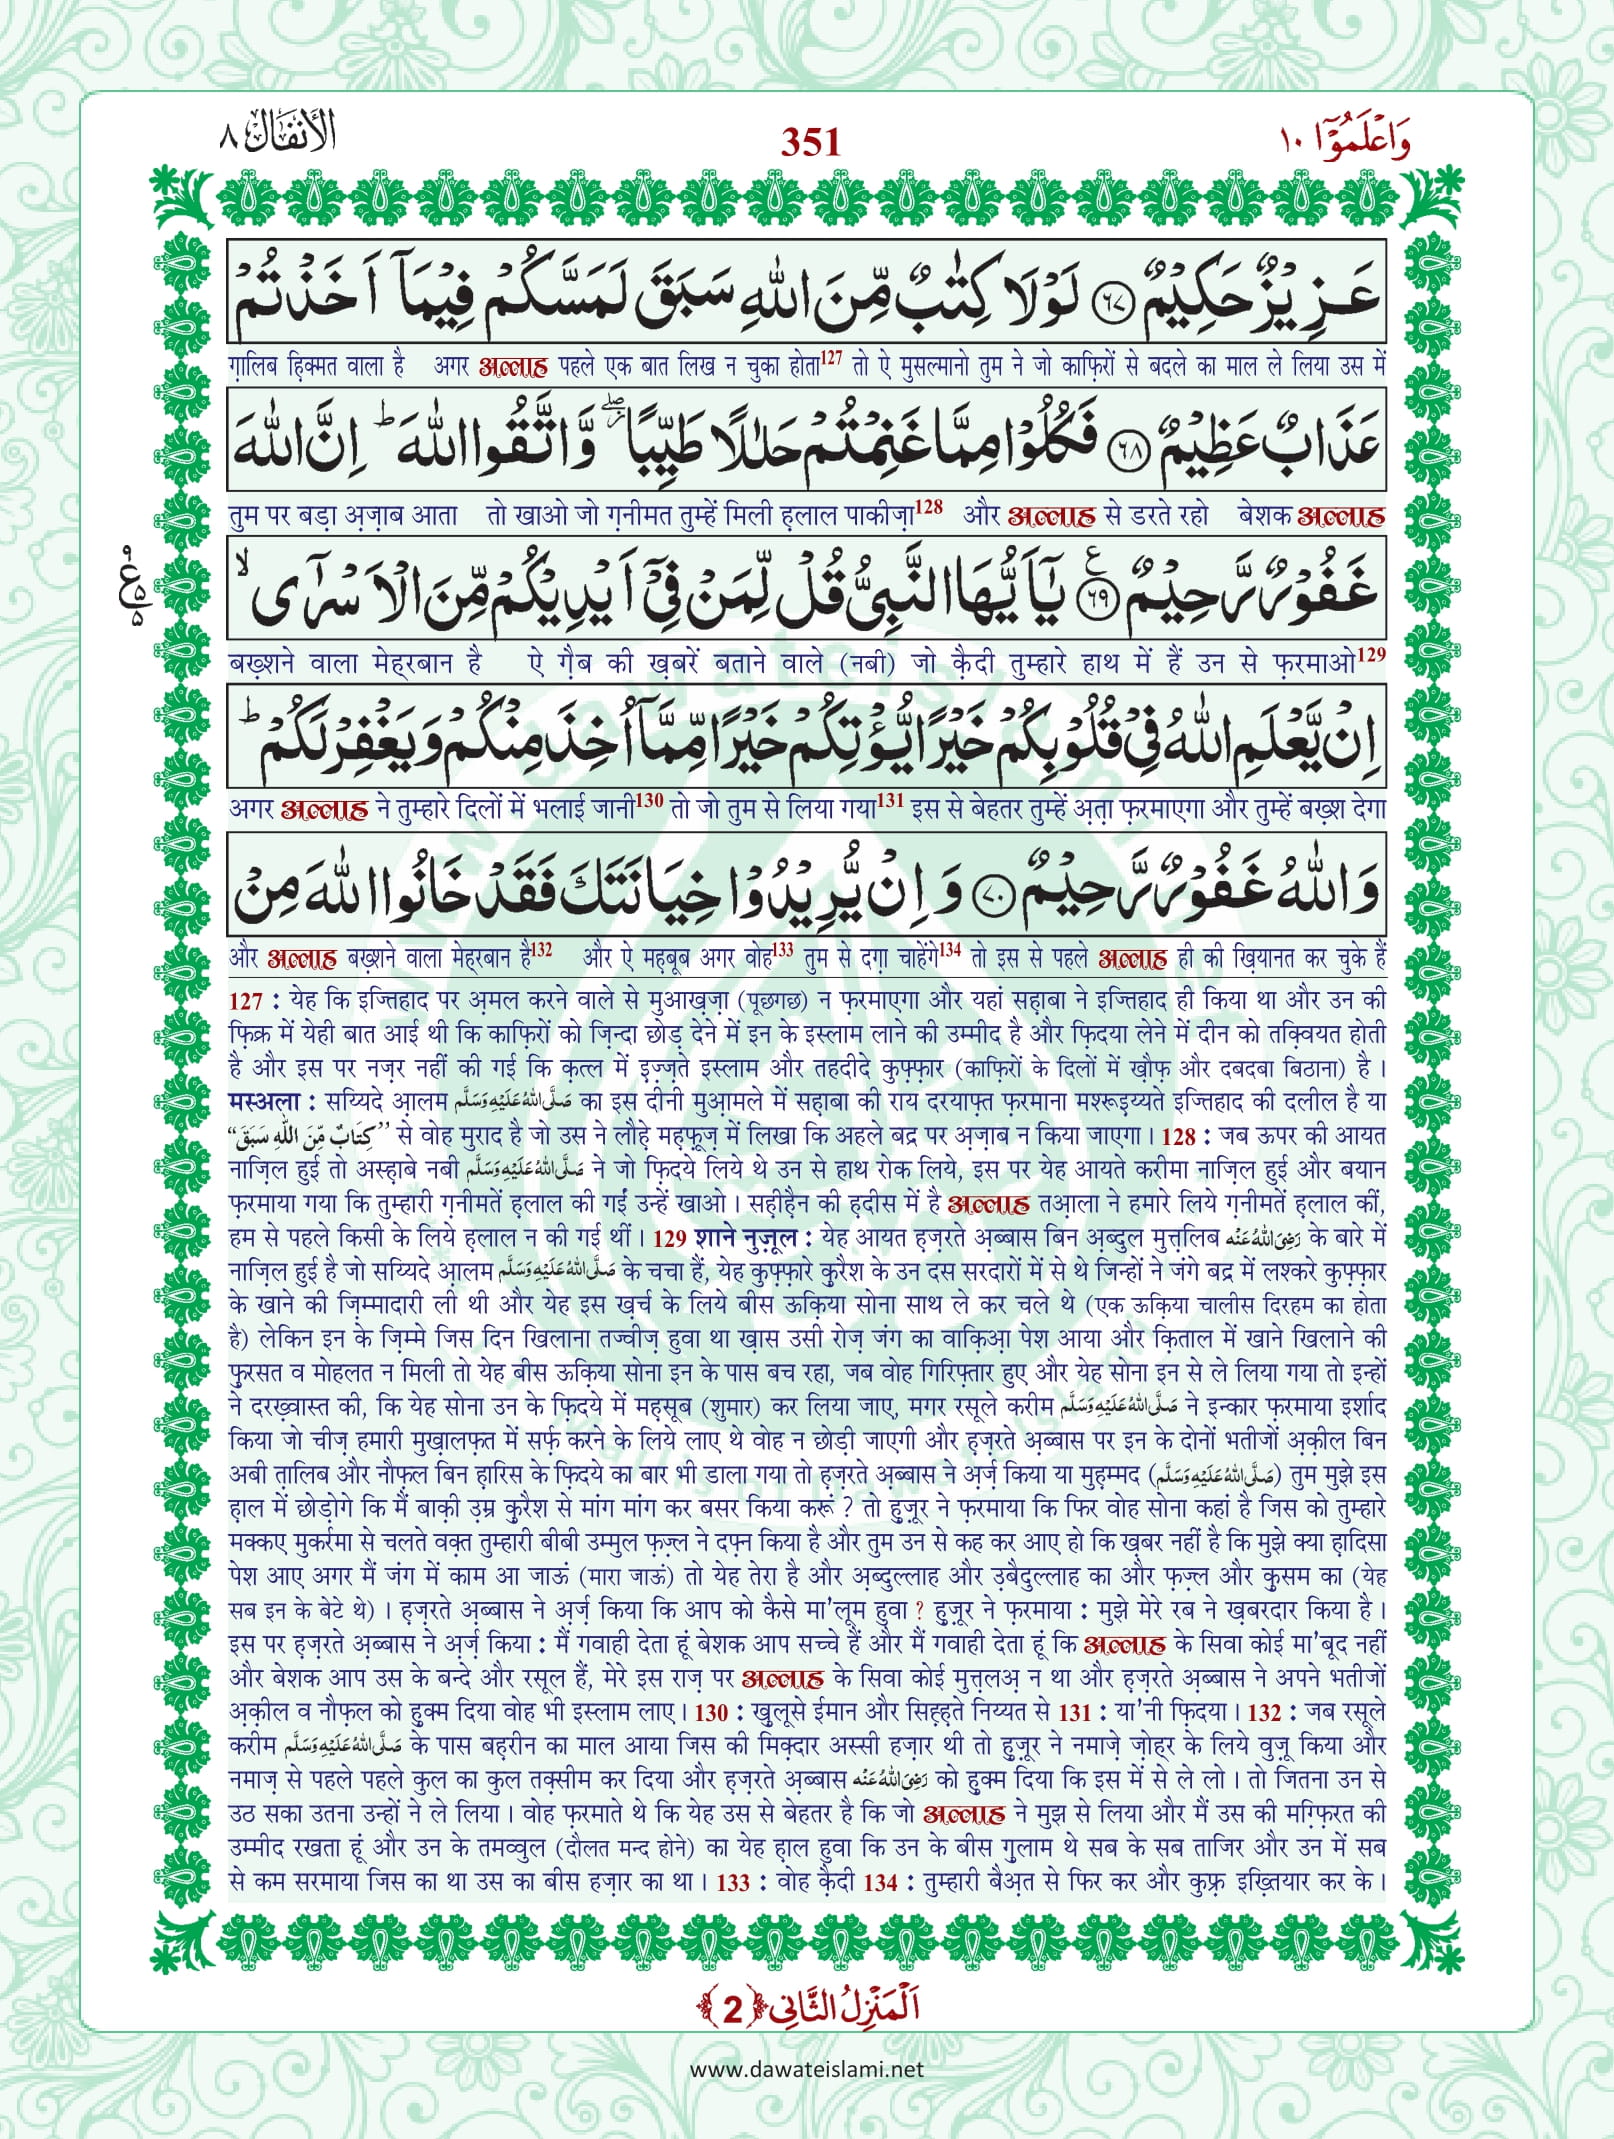 الأنفال ٨
351
وَاعْلَمُوْۤا ١٠
عَزِيْزٌ حَكِيْمٌ ﴿٦٧﴾ لَوْلَا كِتٰبٌ مِّنَ اللّٰهِ سَبَقَ لَمَسَّكُمْ فِيْمَاۤ اَخَذْتُمْ
ग़ालिब हि़क्मत वाला है अगर अल्लाह पहले एक बात लिख न चुका होता127 तो ऐ मुसल्मानो तुम ने जो काफ़िरों से बदले का माल ले लिया उस में
عَذَابٌ عَظِيْمٌ ﴿٦٨﴾ فَكُلُوْا مِمَّا غَنِمْتُمْ حَلٰلًا طَيِّبًا ۖز وَّاتَّقُوا اللّٰهَ ؕ اِنَّ اللّٰهَ
तुम पर बड़ा अ़ज़ाब आता तो खाओ जो ग़नीमत तुम्हें मिली ह़लाल पाकीज़ा128 और अल्लाह से डरते रहो बेशक अल्लाह
غَفُوْرٌ رَّحِيْمٌ ﴿٦٩﴾ع يٰۤاَيُّهَا النَّبِيُّ قُلْ لِّمَنْ فِيْۤ اَيْدِيْكُمْ مِّنَ الْاَسْرٰۤى ۙ
बख़्शने वाला मेह़रबान है ऐ ग़ैब की ख़बरें बताने वाले (नबी) जो क़ैदी तुम्हारे हाथ में हैं उन से फ़रमाओ129
اِنْ يَّعْلَمِ اللّٰهُ فِيْ قُلُوْبِكُمْ خَيْرًا يُّؤْتِكُمْ خَيْرًا مِّمَّاۤ اُخِذَ مِنْكُمْ وَيَغْفِرْ لَكُمْ ؕ
अगर अल्लाह ने तुम्हारे दिलों में भलाई जानी130 तो जो तुम से लिया गया131 इस से बेहतर तुम्हें अ़त़ा फ़रमाएगा और तुम्हें बख़्श देगा
وَاللّٰهُ غَفُوْرٌ رَّحِيْمٌ ﴿٧٠﴾ وَاِنْ يُّرِيْدُوْا خِيَانَتَكَ فَقَدْ خَانُوا اللّٰهَ مِنْ
और अल्लाह बख़्शने वाला मेह़रबान है132 और ऐ मह़बूब अगर वोह133 तुम से दग़ा चाहेंगे134 तो इस से पहले अल्लाह ही की ख़ियानत कर चुके हैं
127 : येह कि इज्तिहाद पर अ़मल करने वाले से मुआख़ज़ा (पूछगछ) न फ़रमाएगा और यहां सह़ाबा ने इज्तिहाद ही किया था और उन की
फ़िक्र में येही बात आई थी कि काफ़िरों को ज़िन्दा छोड़ देने में इन के इस्लाम लाने की उम्मीद है और फ़िदया लेने में दीन को तक़्वियत होती
है और इस पर नज़र नहीं की गई कि क़त्ल में इ़ज़्ज़ते इस्लाम और तहदीदे कुफ़्फ़ार (काफ़िरों के दिलों में ख़ौफ़ और दबदबा बिठाना) है ।
मस्अला : सय्यिदे आ़लम صَلَّى اللهُ عَلَيْهِ وَسَلَّم का इस दीनी मुआ़मले में सह़ाबा की राय दरयाफ़्त फ़रमाना मश्रूइ़य्यते इज्तिहाद की दलील है या
“كِتَابٌ مِّنَ اللّٰهِ سَبَقَ” से वोह मुराद है जो उस ने लौह़े मह़्फ़ूज़ में लिखा कि अहले बद्र पर अ़ज़ाब न किया जाएगा । 128 : जब ऊपर की आयत
नाज़िल हुई तो अस्ह़ाबे नबी صَلَّى اللهُ عَلَيْهِ وَسَلَّم ने जो फ़िदये लिये थे उन से हाथ रोक लिये, इस पर येह आयते करीमा नाज़िल हुई और बयान
फ़रमाया गया कि तुम्हारी ग़नीमतें ह़लाल की गईं उन्हें खाओ । सह़ीह़ैन की ह़दीस में है अल्लाह तआ़ला ने हमारे लिये ग़नीमतें ह़लाल कीं,
हम से पहले किसी के लिये ह़लाल न की गई थीं । 129 शाने नुज़ूल : येह आयत ह़ज़रते अ़ब्बास बिन अ़ब्दुल मुत्तलिब رَضِىَ اللهُ عَنْه के बारे में
नाज़िल हुई है जो सय्यिदे आ़लम صَلَّى اللهُ عَلَيْهِ وَسَلَّم के चचा हैं, येह कुफ़्फ़ारे क़ुरैश के उन दस सरदारों में से थे जिन्हों ने जंगे बद्र में लश्करे कुफ़्फ़ार
के खाने की ज़िम्मादारी ली थी और येह इस ख़र्च के लिये बीस ऊक़िया सोना साथ ले कर चले थे (एक ऊक़िया चालीस दिरहम का होता
है) लेकिन इन के ज़िम्मे जिस दिन खिलाना तज्वीज़ हुवा था ख़ास उसी रोज़ जंग का वाक़िआ़ पेश आया और क़िताल में खाने खिलाने की
फ़ुरसत व मोहलत न मिली तो येह बीस ऊक़िया सोना इन के पास बच रहा, जब वोह गिरिफ़्तार हुए और येह सोना इन से ले लिया गया तो इन्हों
ने दरख़्वास्त की, कि येह सोना उन के फ़िदये में मह़सूब (शुमार) कर लिया जाए, मगर रसूले करीम صَلَّى اللهُ عَلَيْهِ وَسَلَّم ने इन्कार फ़रमाया इर्शाद
किया जो चीज़ हमारी मुख़ालफ़त में सर्फ़ करने के लिये लाए थे वोह न छोड़ी जाएगी और ह़ज़रते अ़ब्बास पर इन के दोनों भतीजों अ़क़ील बिन
अबी त़ालिब और नौफ़ल बिन ह़ारिस के फ़िदये का बार भी डाला गया तो ह़ज़रते अ़ब्बास ने अ़र्ज़ किया या मुह़म्मद (صَلَّى اللهُ عَلَيْهِ وَسَلَّم) तुम मुझे इस
ह़ाल में छोड़ोगे कि मैं बाक़ी उ़म्र क़ुरैश से मांग मांग कर बसर किया करूं ? तो हु़ज़ूर ने फ़रमाया कि फिर वोह सोना कहां है जिस को तुम्हारे
मक्कए मुकर्रमा से चलते वक़्त तुम्हारी बीबी उम्मुल फ़ज़्ल ने दफ़्न किया है और तुम उन से कह कर आए हो कि ख़बर नहीं है कि मुझे क्या ह़ादिसा
पेश आए अगर मैं जंग में काम आ जाऊं (मारा जाऊं) तो येह तेरा है और अ़ब्दुल्लाह और उ़बैदुल्लाह का और फ़ज़्ल और क़ुसम का (येह
सब इन के बेटे थे) । ह़ज़रते अ़ब्बास ने अ़र्ज़ किया कि आप को कैसे मा'लूम हुवा ? हु़ज़ूर ने फ़रमाया : मुझे मेरे रब ने ख़बरदार किया है ।
इस पर ह़ज़रते अ़ब्बास ने अ़र्ज़ किया : मैं गवाही देता हूं बेशक आप सच्चे हैं और मैं गवाही देता हूं कि अल्लाह के सिवा कोई मा'बूद नहीं
और बेशक आप उस के बन्दे और रसूल हैं, मेरे इस राज़ पर अल्लाह के सिवा कोई मुत्तलअ़ न था और ह़ज़रते अ़ब्बास ने अपने भतीजों
अ़क़ील व नौफ़ल को हु़क्म दिया वोह भी इस्लाम लाए । 130 : ख़ुलूसे ईमान और सिह़्ह़ते निय्यत से 131 : या'नी फ़िदया । 132 : जब रसूले
करीम صَلَّى اللهُ عَلَيْهِ وَسَلَّم के पास बह़रीन का माल आया जिस की मिक़्दार अस्सी हज़ार थी तो हु़ज़ूर ने नमाज़े ज़ोहर के लिये वुज़ू किया और
नमाज़ से पहले पहले कुल का कुल तक़्सीम कर दिया और ह़ज़रते अ़ब्बास رَضِىَ اللهُ عَنْه को हु़क्म दिया कि इस में से ले लो । तो जितना उन से
उठ सका उतना उन्हों ने ले लिया । वोह फ़रमाते थे कि येह उस से बेहतर है कि जो अल्लाह ने मुझ से लिया और मैं उस की मग़्फ़िरत की
उम्मीद रखता हूं और उन के तमव्वुल (दौलत मन्द होने) का येह ह़ाल हुवा कि उन के बीस ग़ुलाम थे सब के सब ताजिर और उन में सब
से कम सरमाया जिस का था उस का बीस हज़ार का था । 133 : वोह क़ैदी 134 : तुम्हारी बैअ़त से फिर कर और कुफ़्र इख़्तियार कर के ।
اَلْمَنْزِلُ الثَّانِى ﴿2﴾
www.dawateislami.net